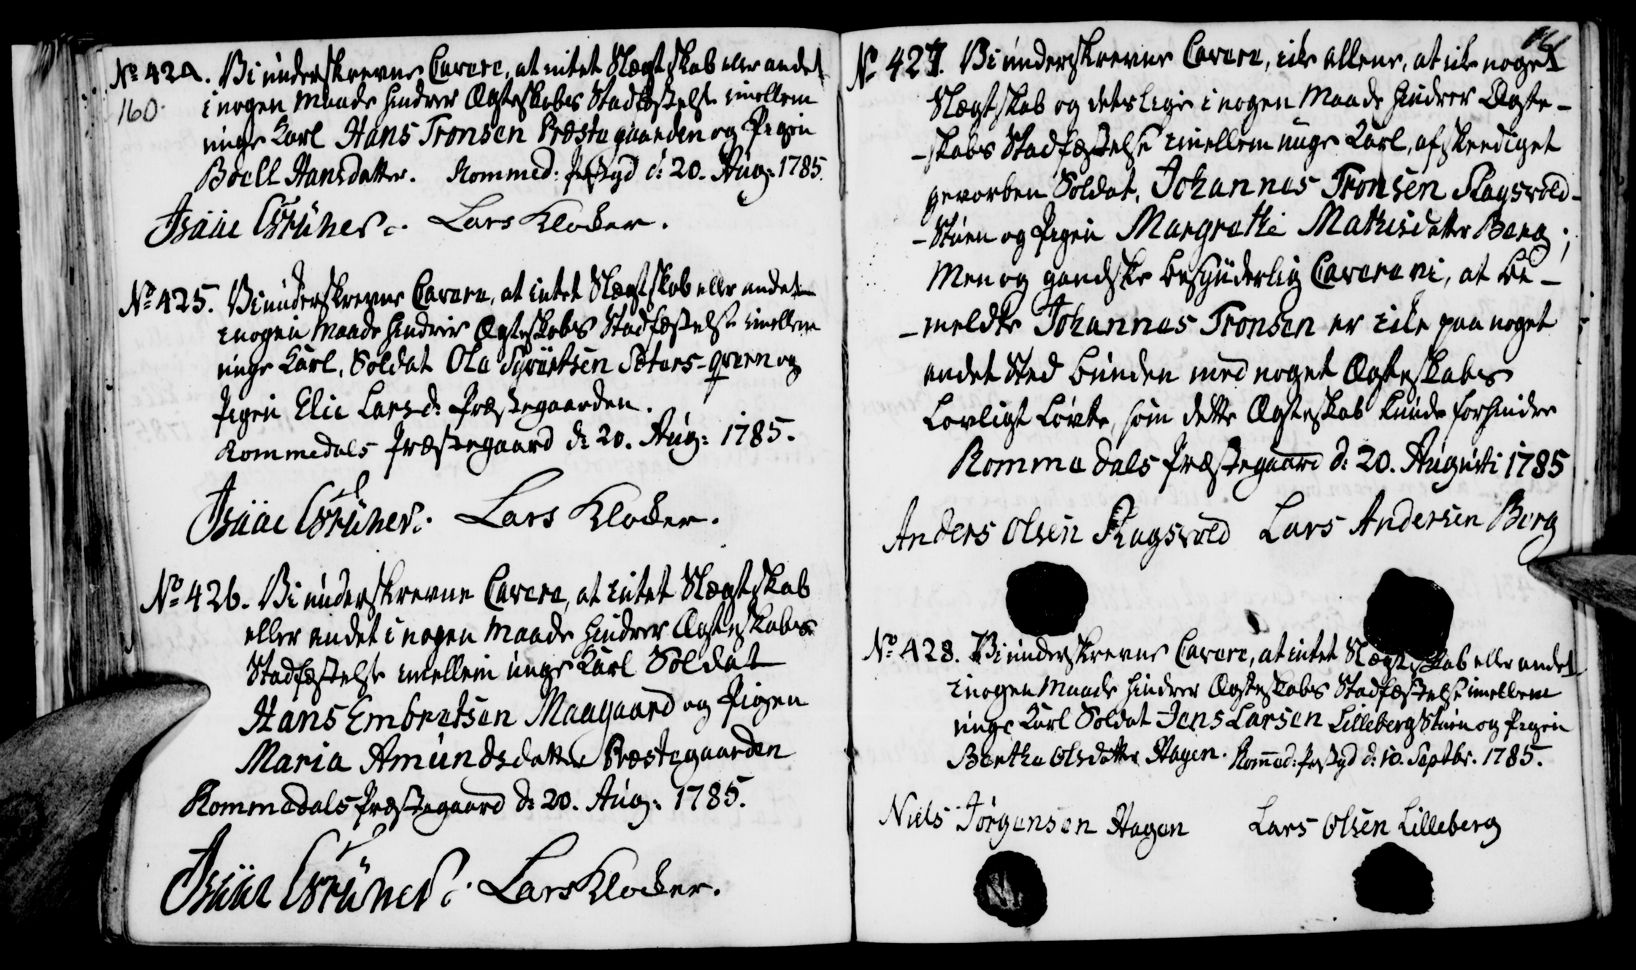 No 424. Vi underskrevne Cavere, at intet Slægtskab eller andet
160.
i nogen Maade hindrer Ægteskabes Stadfæstelse imellem
unge Karl Hans Tronsen Præstegaarden og Pigen
Boell Hansdatter. Rommed: Pr:stgd d: 20. Aug: 1785.
Isaac Grüner. Lars Klocker.
No 425. Vi underskrevne Cavere, at intet Slægtskab eller andet
i nogen Maade hindrer Ægteskabes Stadfæstelse imellem
unge Karl, Soldat Ola Syvertsen Sæters-qværn og
Pigen Elie Larsd: Præstegaarden.
Rommedals Præstegaard d: 20. Aug: 1785.
Isaac Grüner. Lars Klocker.
No 426. Vi underskrevne Cavere, at intet Slægtskab
eller andet i nogen Maade hindrer Ægteskabes
Stadfæstelse imellem unge Karl Soldat
Hans Embretsen Maagaard og Pigen
Maria Amundsdatter Præstegaarden
Rommedals Præstegaard d: 20. Aug: 1785.
Isaac Grüner. Lars Klocker.
No 427. Vi underskrevne Cavere, ikke allene, at ikke noget
Slægtskab og deslige i nogen Maade hindrer Ægte-
-skabs Stadfæstelse imellem unge Karl, afskeediget
gevorben Soldat, Johannes Tronsen Skagsvold-
-Stuen og Pigen Margrethe Mathisdatter Berg;
Men og gandske besynderlig Cavere vi, at be-
-meldte Johannes Tronsen er ikke paa noget
andet Sted bunden med noget Ægteskabes
Lovligt Løvte, som dette Ægteskab kunde forhindre
Rommedals Præstegaard d: 20. Augusti 1785
Anders Olsen Skagsvold Lars Andersen Berg
No 428. Vi underskrevne Cavere, at intet Slægtskab eller andet
i nogen Maade hindrer Ægteskabes Stadfæstelse imellem
unge Karl Soldat Jens Larsen Lilleberg Stuen og Pigen
Berthe Olsdatter Hagen. Rommed: Pr:stgd d: 10. Septbr. 1785.
Niels Jørgensen Hagen Lars Olsen Lilleberg